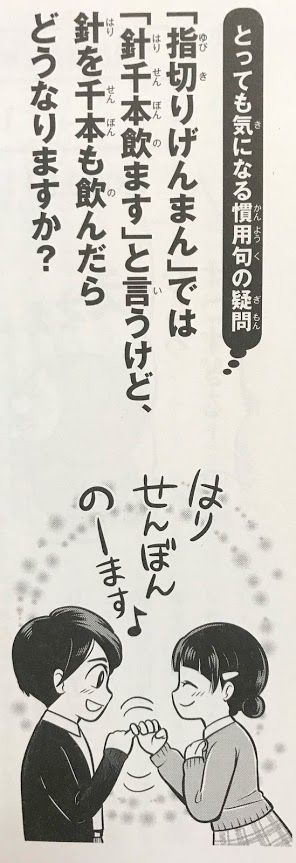 とっても気になる慣用句の疑問
「指切りげんまん」では
「針千本飲ます」と言うけど、
針を千本も飲んだら
どうなりますか？
はり
せんぼん
のーます♪